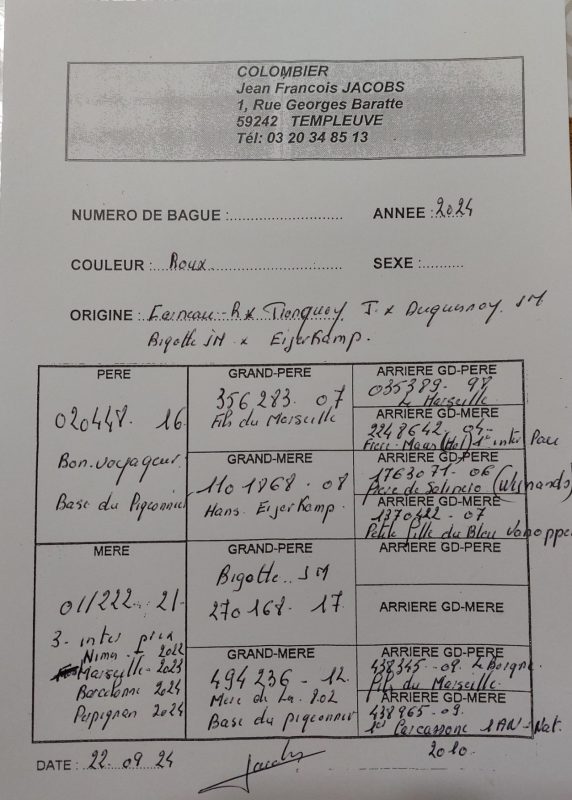 COLOMBIER
Jean Francois JACOBS
1, Rue Georges Baratte
59242 TEMPLEUVE
Tél: 03 20 34 85 13
NUMERO DE BAGUE :............................ ANNEE :2024
COULEUR :....Roux SEXE :..........
ORIGINE :. R x J. x Duquesnoy JM
Bigotte JM x Eijerkamp.
PERE
020448. 16
Bon voyageur
Base du Pigeonnier
GRAND-PERE
356283. 07
Fils du Marseille
ARRIERE GD-PERE
035389. 98
Le Marseille.
ARRIERE GD-MERE
2248642. 04
(Hol) 1er inter Pau
GRAND-MERE
1101868. 08
Hans. Eijerkamp.
ARRIERE GD-PERE
1763071. 06
de (Wijnands)
ARRIERE GD-MERE
1370422. 07
Petite fille du Bleu Vanoppen
MERE
011222. 21.
3. inter prix
2022
Marseille - 2023
Barcelonne 2024
Perpignan 2024
GRAND-PERE
Bigotte. JM
270168. 17.
ARRIERE GD-PERE
ARRIERE GD-MERE
GRAND-MERE
494236 - 12.
Mere de La 202
Base du pigeonnier
ARRIERE GD-PERE
438345. 09. Le Borgne.
Fils du Marseille.
ARRIERE GD-MERE
438965. 09.
1er Carcassone 1AN - Nat.
2010.
DATE : 22. 09. 24